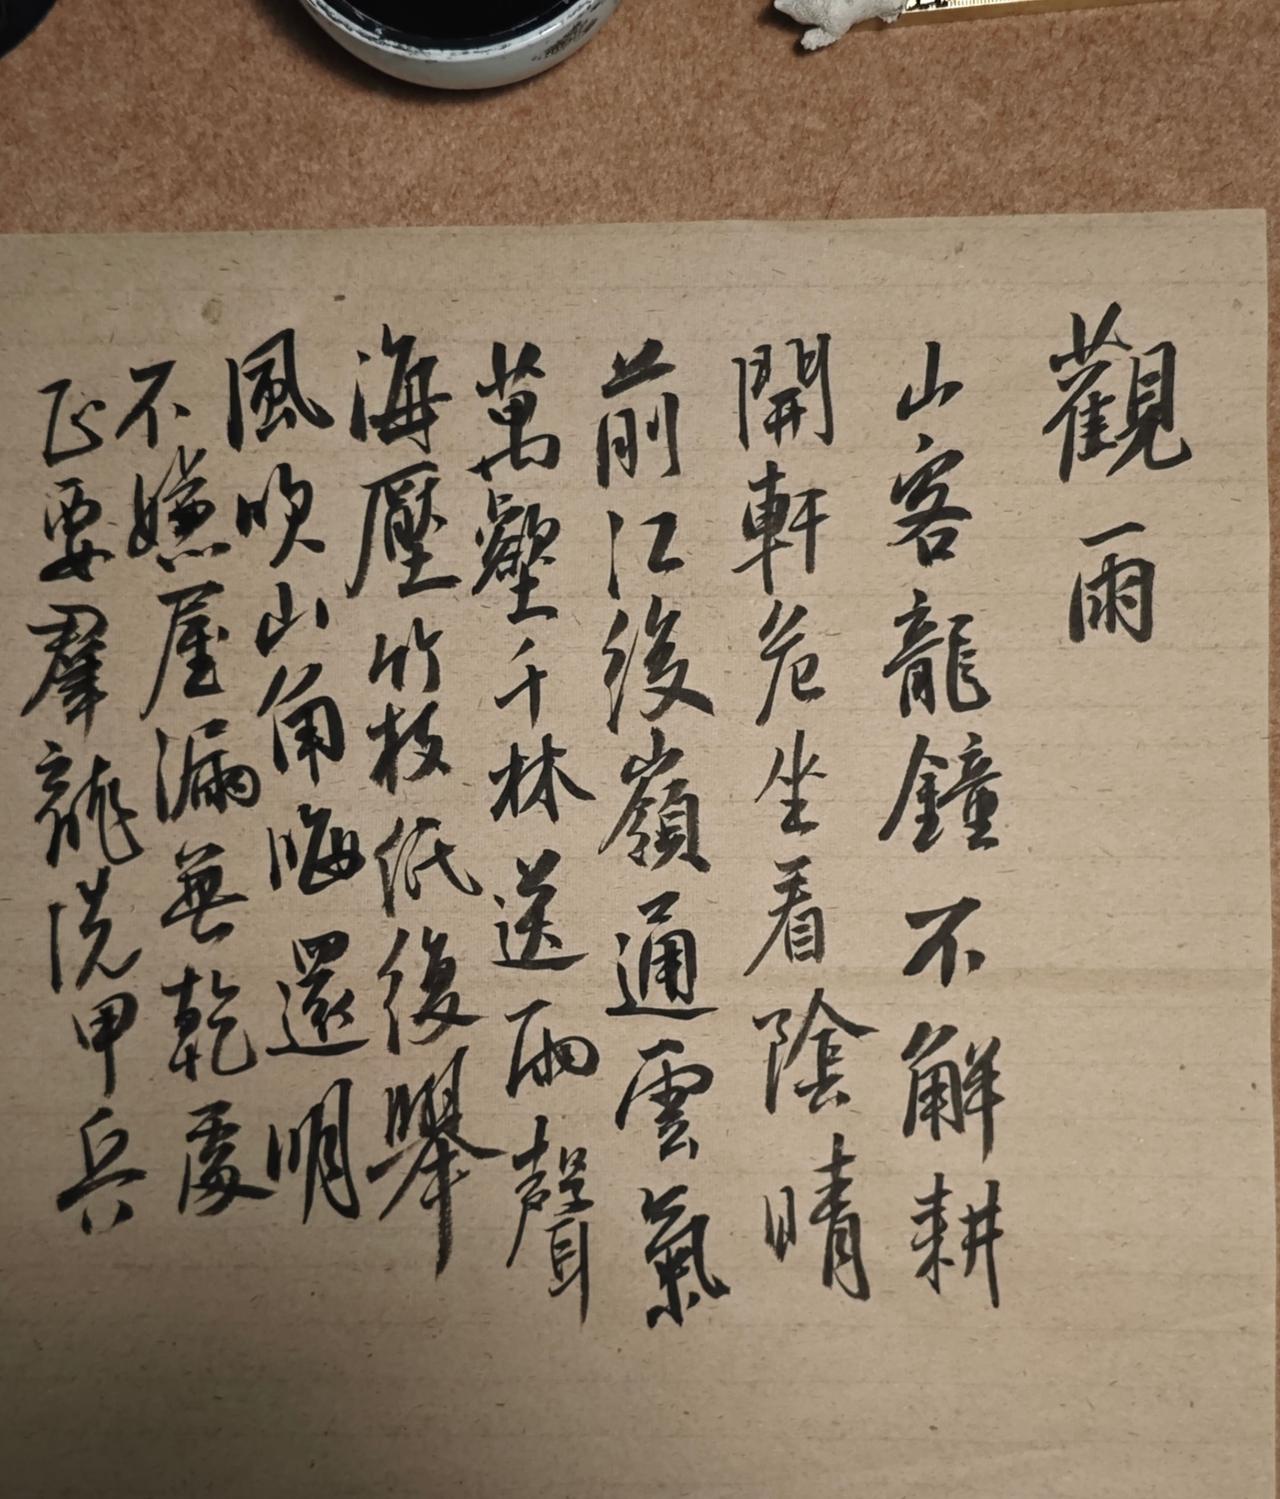 觀雨
山客龍鐘不解耕
開軒危坐看陰晴
前江後嶺通雲氣
萬壑千林送雨聲
海壓竹枝低復舉
風吹山角晦還明
不嫌屋漏無乾處
正要羣龍洗甲兵